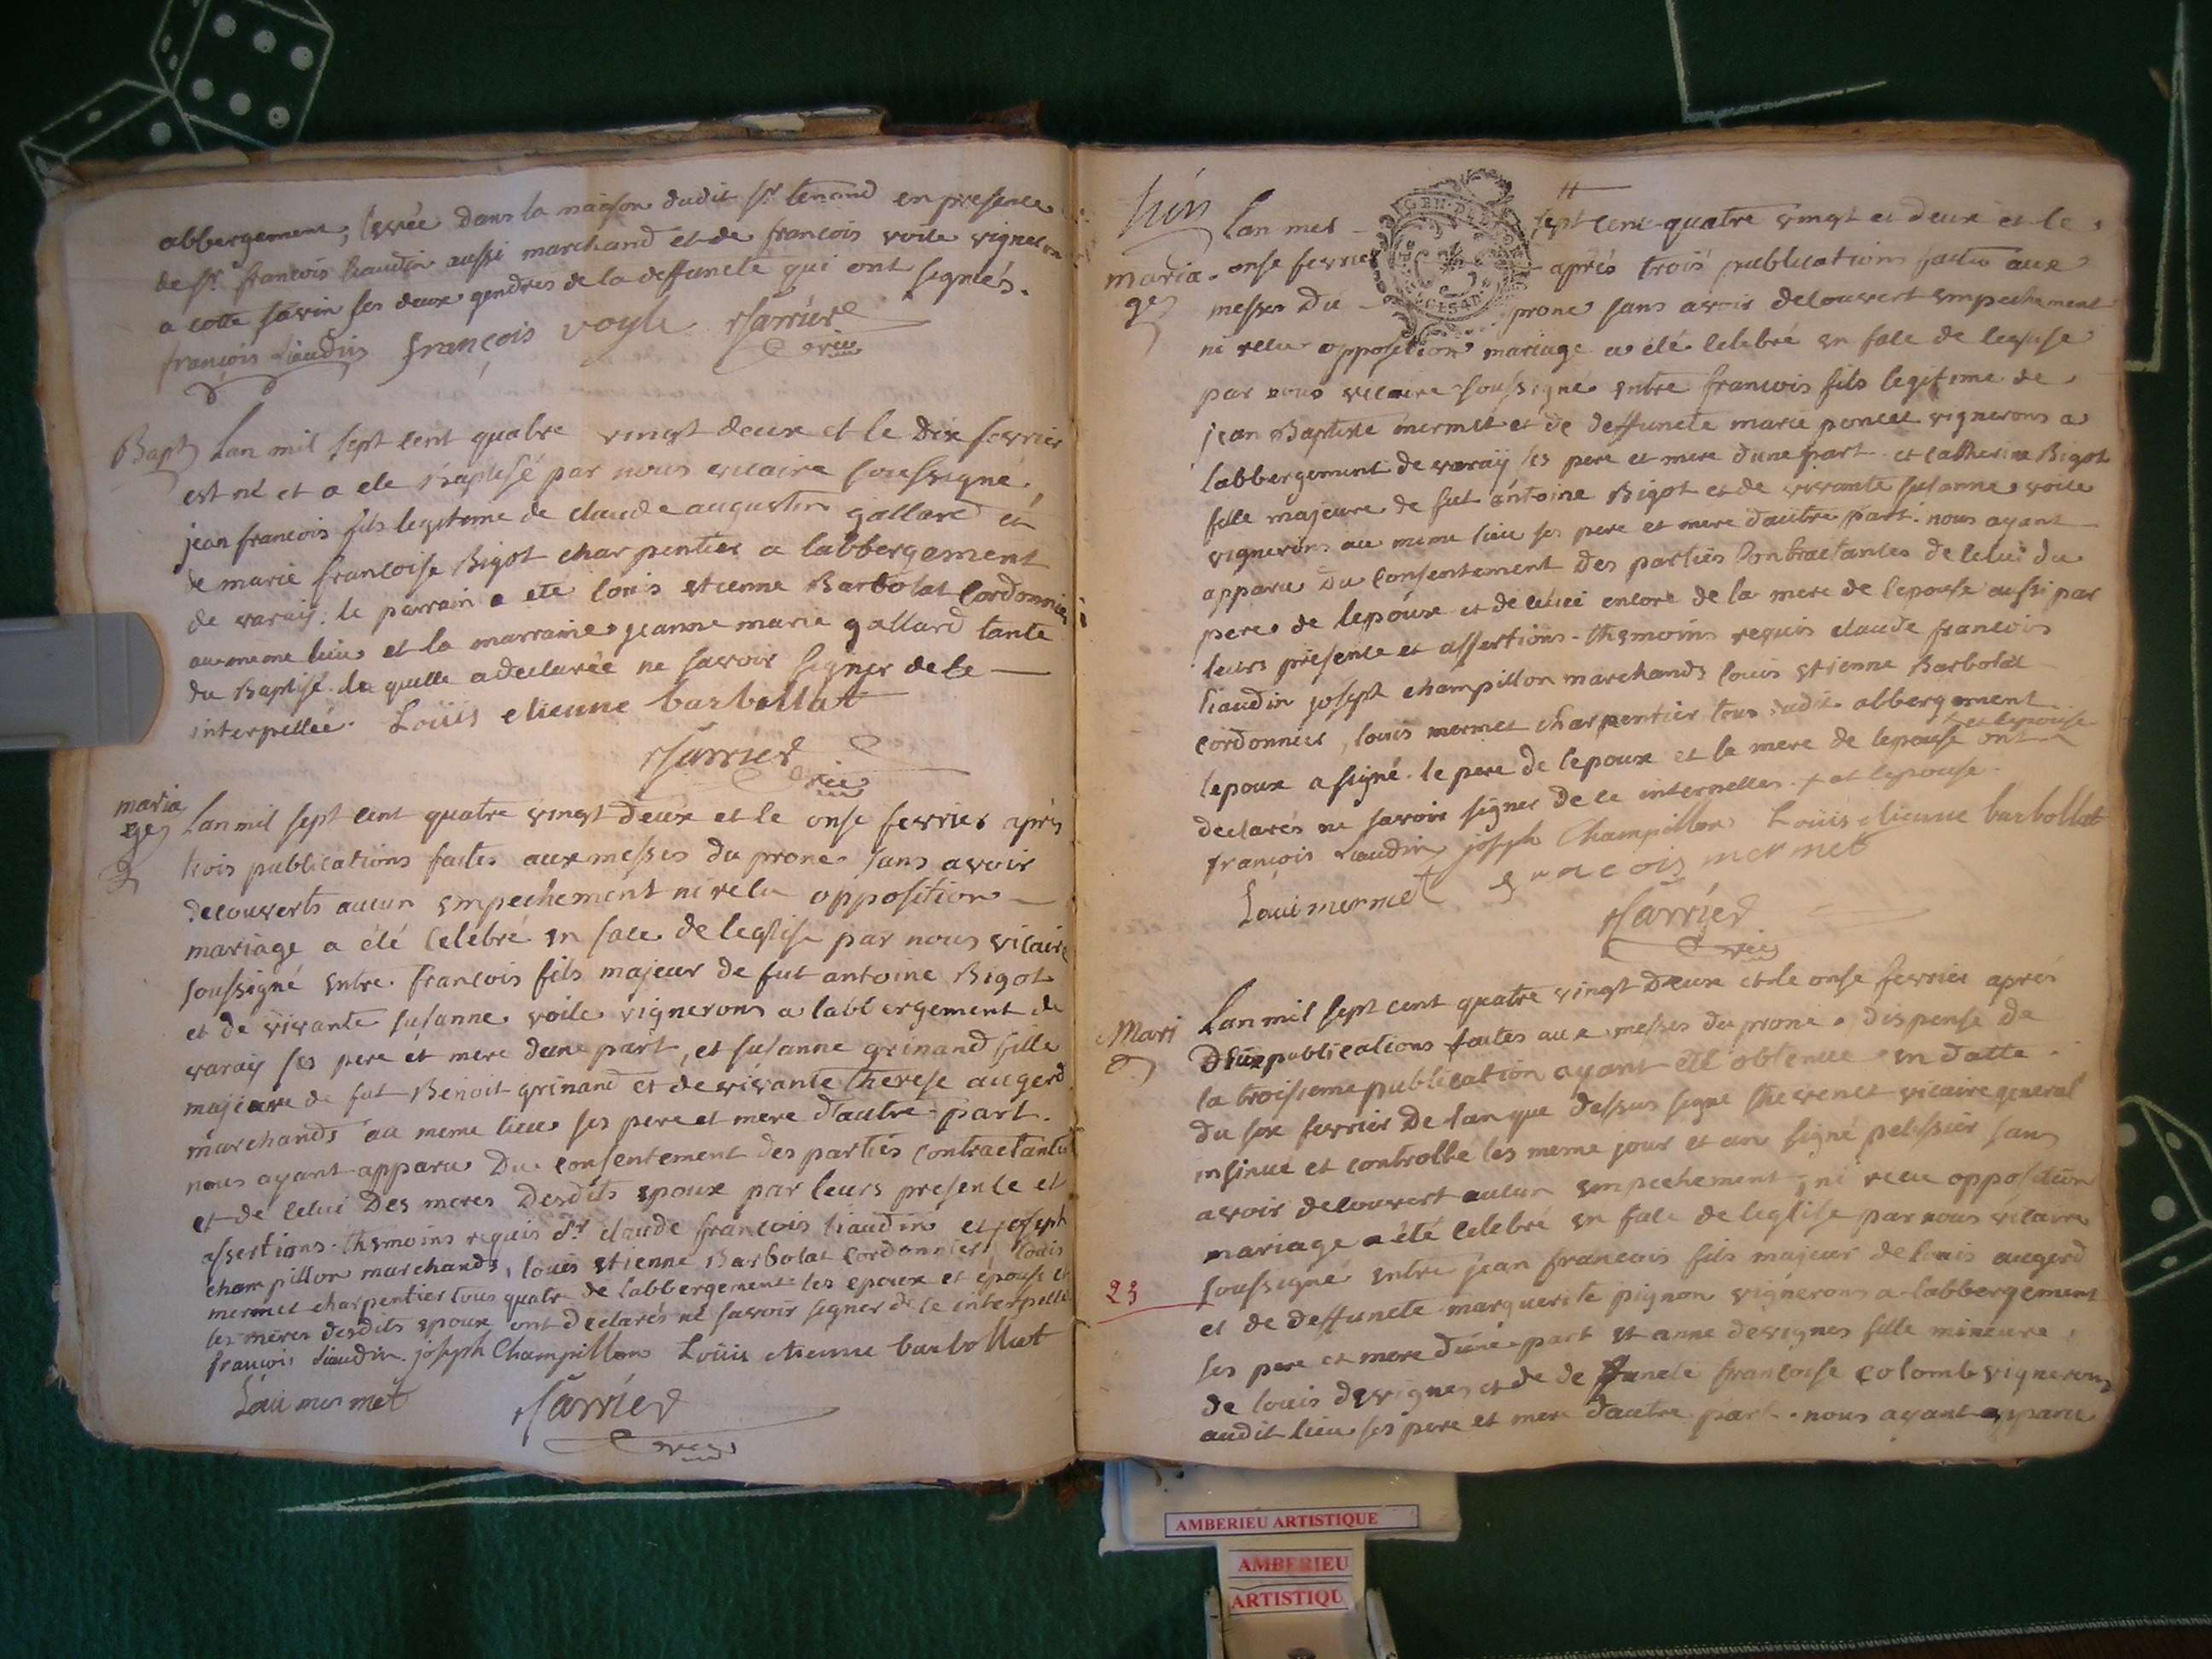 abbergement, levée dans la maison dudit sr tenand en presence
de sr francois liaudin aussi marchand et de francois voile vigneron
a cotte savin ses deux gendres de la deffuncte qui ont signés.
françois Liaudin françois voyle Sarrier
vic
Bapt Lan mil sept cent quatre vingt deux et le dix fevrier
est né et a ete Baptisé par nous vicaire soussigné
jean francois fils legitime de claude augustin gallard et
de marie francoise Bigot charpentier a labbergement
de varaÿ. le parrain a ete louis etienne Barbolat cordonnier
au meme lieu et la marraine jeanne marie gallard tante
du Baptisé. la quelle a declarée ne savoir signer de ce
interpellée. Loüis etienne barbollat
Sarrier
vic
maria Lan mil sept cent quatre vingt deux et le onse fevrier après
ge trois publications faites aux messes du prone sans avoir
decouverts aucun empechement ni recu opposition
mariage a été celebré en face de leglise par nous vicaire
soussigné entre francois fils majeur de fut antoine Bigot
et de vivante susanne voile vignerons a labbergement de
varaÿ ses pere et mere dune part, et susanne grinand fille
majeure de fut Benoit grinand et de vivante therese augerd
marchands au meme lieu ses pere et mere dautre part.
nous ayant apparu du consentement des parties contractantes
et de celui des meres desdits epoux par leurs presence et
assertions. themoins requis sr claude francois liaudin et joseph
champillon marchands, louis etienne Barbolat cordonnier, louis
mermet charpentier tous quatre de labbergement les epoux et épouse et
les meres desdits epoux ont declarés ne savoir signer de ce interpellé
françois Liaudin joseph Champillon Loüis etienne barbollat
Loui mermet Sarrier
vic
Lan mil sept cent quatre vingt et deux et le
maria onse fevrier après trois publications faites aux
ge messes du prone sans avoir decouvert empechement
ni recu opposition mariage a été celebré en face de leglise
par nous vicaire soussigné entre francois fils legitime de
jean Baptiste mermet et de deffuncte marie poncet vignerons a
labbergement de varaÿ ses pere et mere dune part et catherine Bigot
fille majeure de fut antoine Bigot et de vivante susanne voile
vignerons au meme lieu ses pere et mere dautre part. nous ayant
apparu du consentement des parties contractantes de celui du
pere de lepoux et de celui encore de la mere de lepouse aussi par
leurs presence et assertions. themoins requis claude francois
liaudin joseph champillon marchands louis etienne Barbolat
cordonnier, louis mermet charpentier tous dudit abbergement
lepoux a signé. le pere de lepoux et la mere de lepouse et lepouse ont
declarés ne savoir signer de ce interpelles. + et lepouse.
françois Liaudin joseph Champillon Loüis etienne barbollat
Loui mermet francois mermet
Sarrier
vic
Mari Lan mil sept cent quatre vingt deux et le onse fevrier après
deux publications faites aux messes du prone. dispense de
la troisieme publication ayant été obtenue en datte
du six fevrier de lan que dessus signé thevenet vicaire general
insinué et controllé les meme jour et an signé pelissier sans
avoir decouvert aucun empechement, ni recu opposition
mariage a été celebré en face de leglise par nous vicaire
23 soussigné entre jean francois fils majeur de louis augerd
et de deffuncte marguerite pignon vignerons a labbergement
ses pere et mere dune part et anne devignes fille mineure
de louis devignes et de deffuncte francoise colomb vignerons
audit lieu ses pere et mere dautre part. nous ayant apparu
AMBERIEU ARTISTIQUE
AMBERIEU
ARTISTIQU